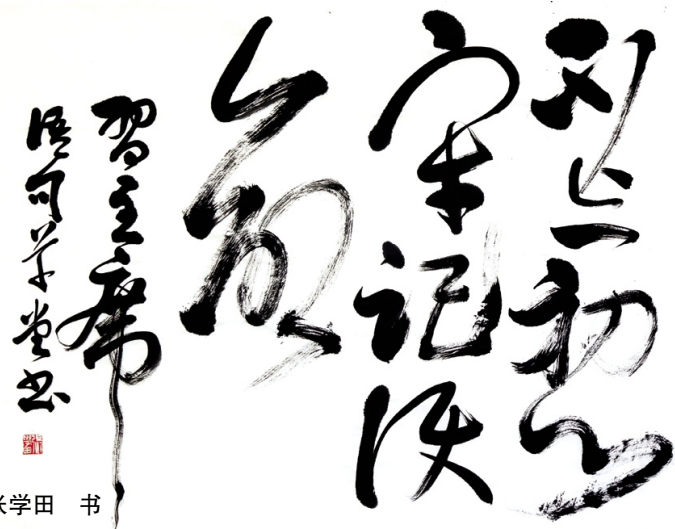 不忘初心
牢记使
命
习主席
语司草堂书
张学田 书